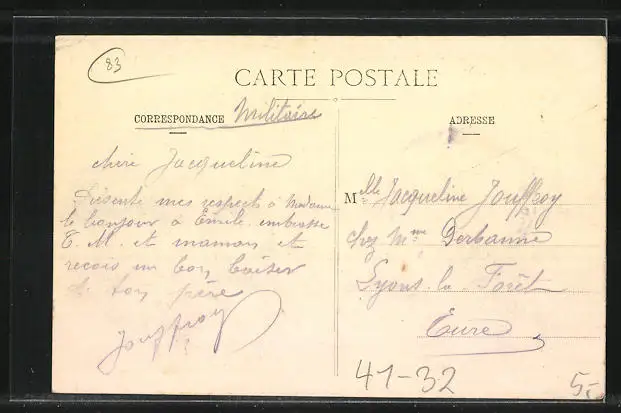 83
CARTE POSTALE
CORRESPONDANCE Militaire
ADRESSE
chère Jacqueline
Présente mes respects à Madame
le bonjour à Emile embrasse
T. M. et maman et
reçois un bon baiser
de ton père
Jouffroy
Melle Jacqueline Jouffroy
chez Mme
Lyons-la-Forêt
Eure
41-32
5,-